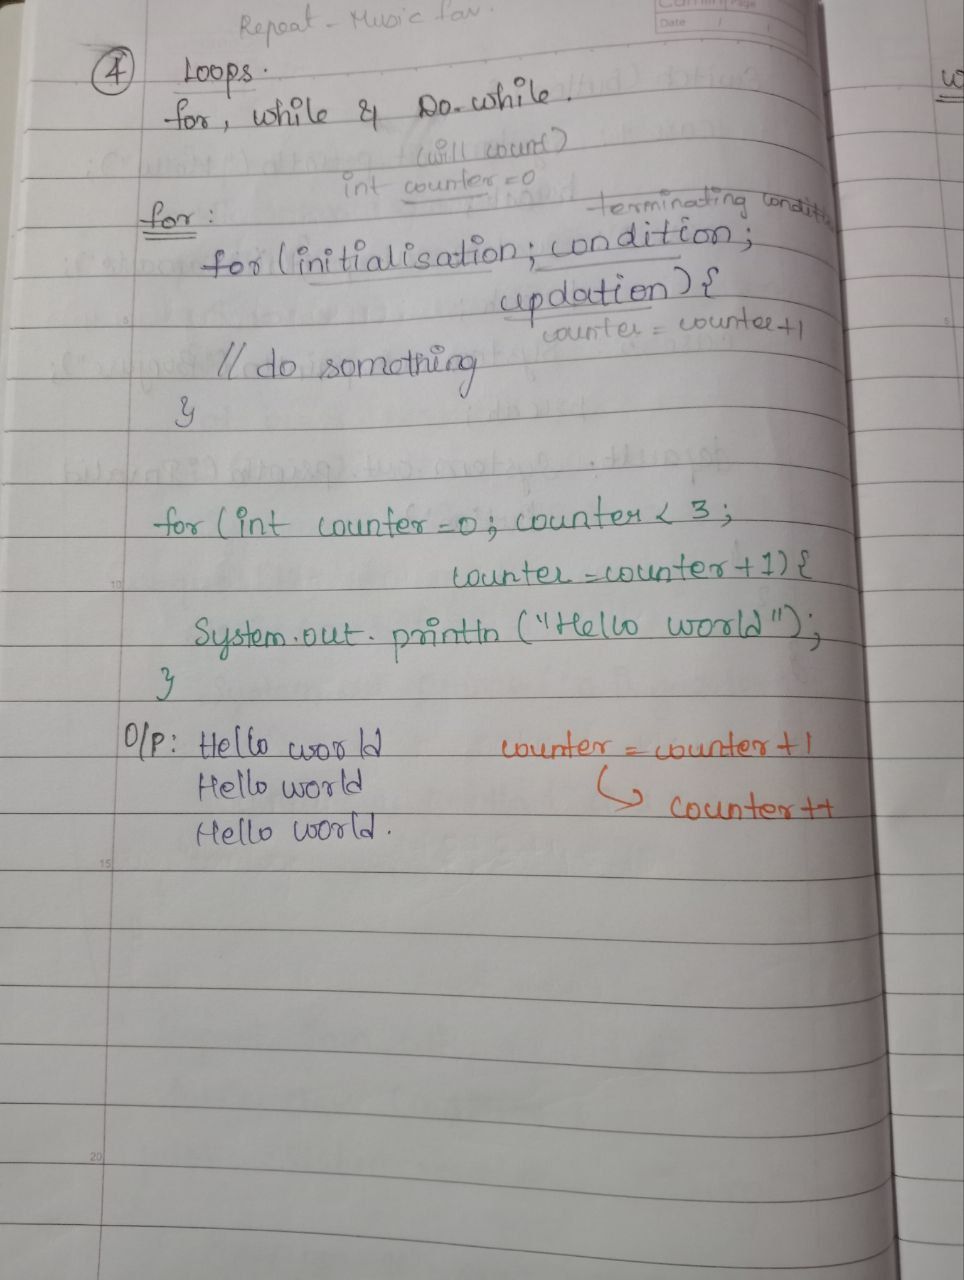 Repeat - Music fav.
Date / /
④ Loops.
for, while & Do-while.
(will count)
int counter = 0
for:
terminating condit
for (initialisation; condition;
updation) {
counter = counter+1
// do somothing
}
for (int counter = 0; counter < 3;
counter = counter + 1) {
System.out.println ("Hello world");
}
O/P: Hello world
counter = counter + 1
Hello world
counter ++
Hello world.
5
10
15
20